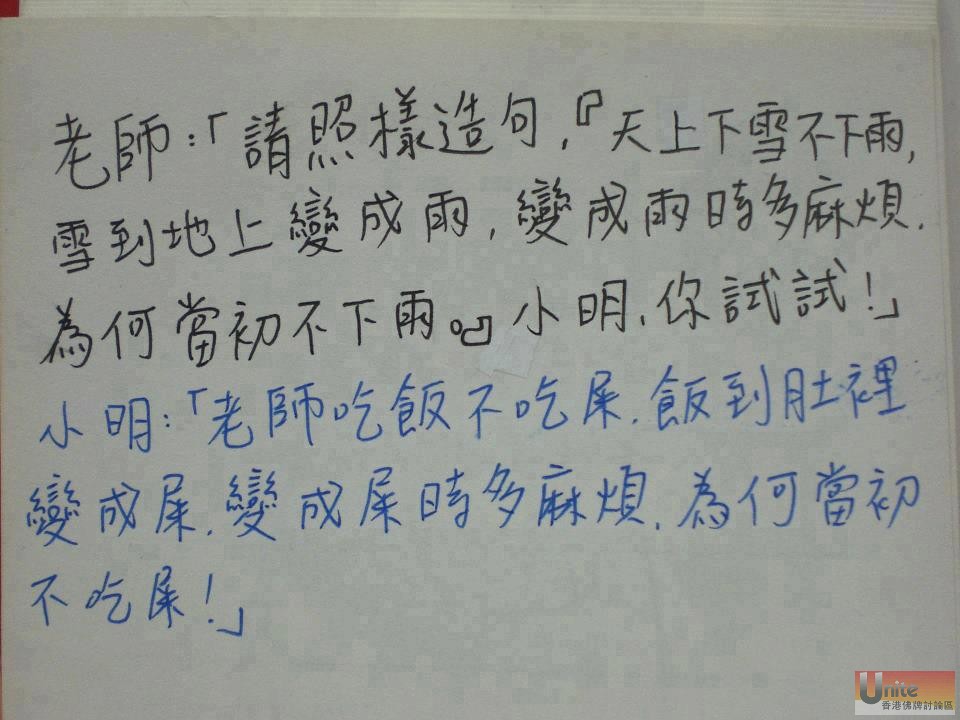 老師：「請照樣造句，『天上下雪不下雨，
雪到地上變成雨，變成雨時多麻煩，
為何當初不下雨。』小明，你試試！」
小明：「老師吃飯不吃屎，飯到肚裡
變成屎，變成屎時多麻煩，為何當初
不吃屎！」
Unite
香港佛牌討論區